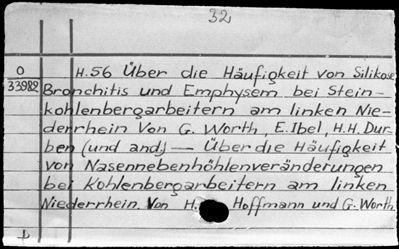 32
O
33982
H.56 Über die Häufigkeit von Silikose
Bronchitis und Emphysem bei Stein-
kohlenbergarbeitern am linken Nie-
derrhein Von G. Worth, E. Ibel, H.H. Dur-
ben (und and.) — Über die Häufigkeit
von Nasennebenhöhlenveränderungen
bei Kohlenbergarbeitern am linken
Niederrhein. Von H. Hoffmann und G. Worth